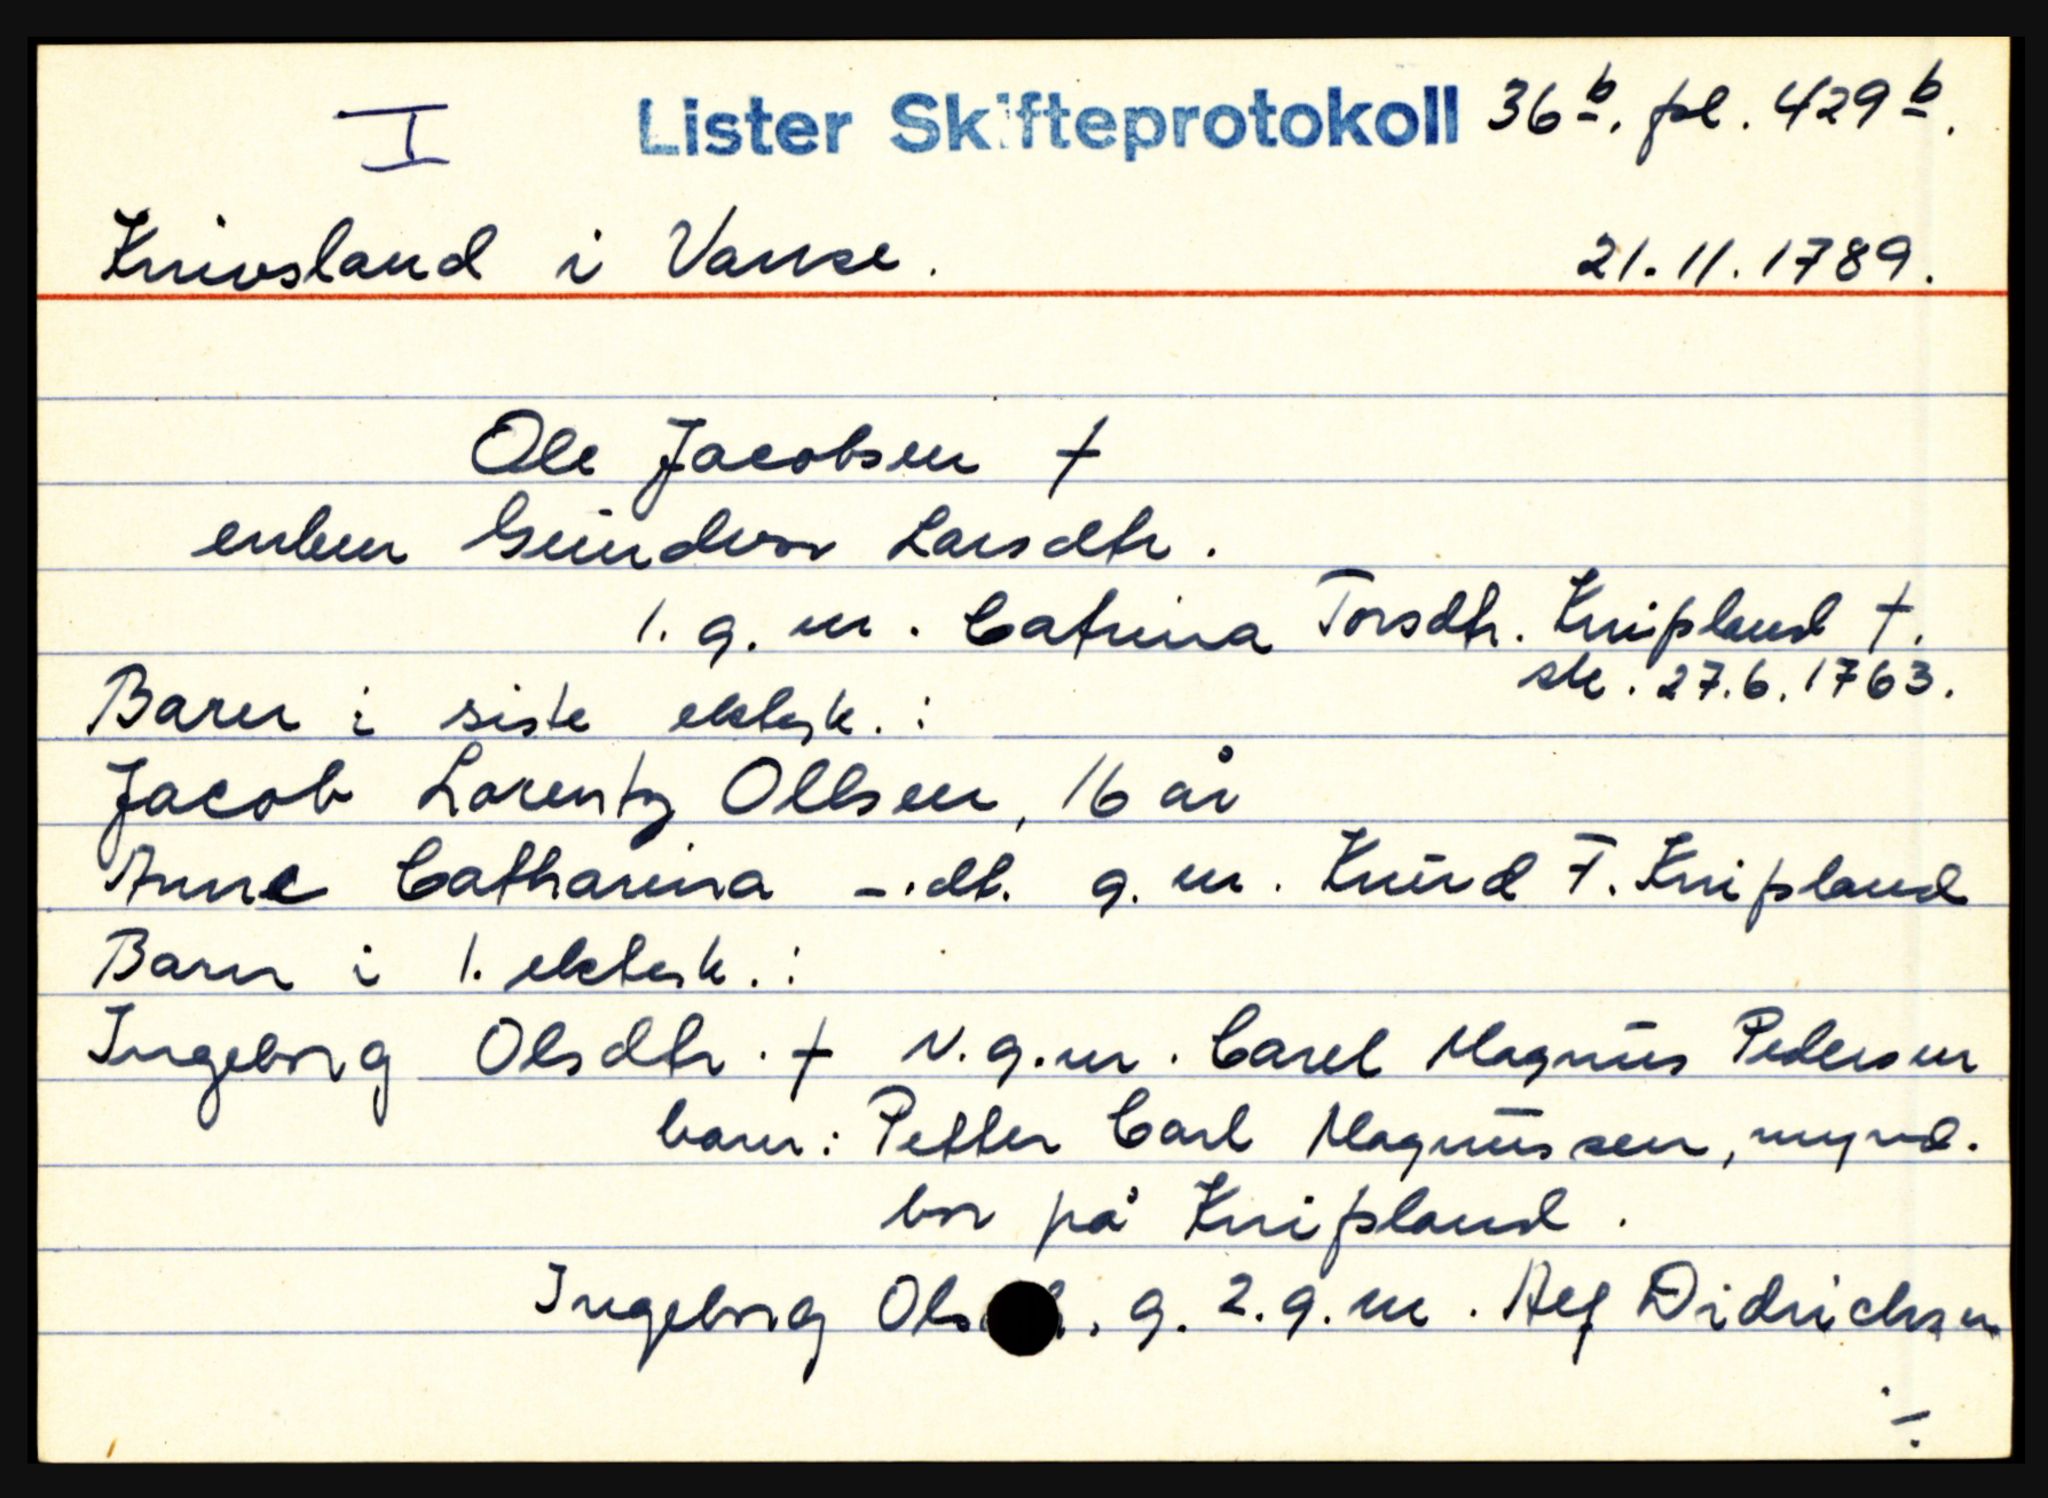 I Lister Skifteprotokoll 36b. pl. 429b.
Knivsland i Vanse. 21.11.1789.
Ole Jacobsen †
enken Gundvor Larsdtr.
1. g. m. Catrina Torsdtr. Knipsland †.
sk. 27.6.1763.
Barn i siste ektesk.:
Jacob Lorentz Ollsen, 16 år
Anne Catharina -.dt. g. m. Knud T. Knipsland
Barn i 1. ektesk.:
Ingeborg Olsdtr. † v. g. m. Carel Magnus Pedersen
barn: Petter Carl Magnussen, mynd.
bor på Knipsland.
Ingeborg g. 2. g. m. Alf Didrichsen